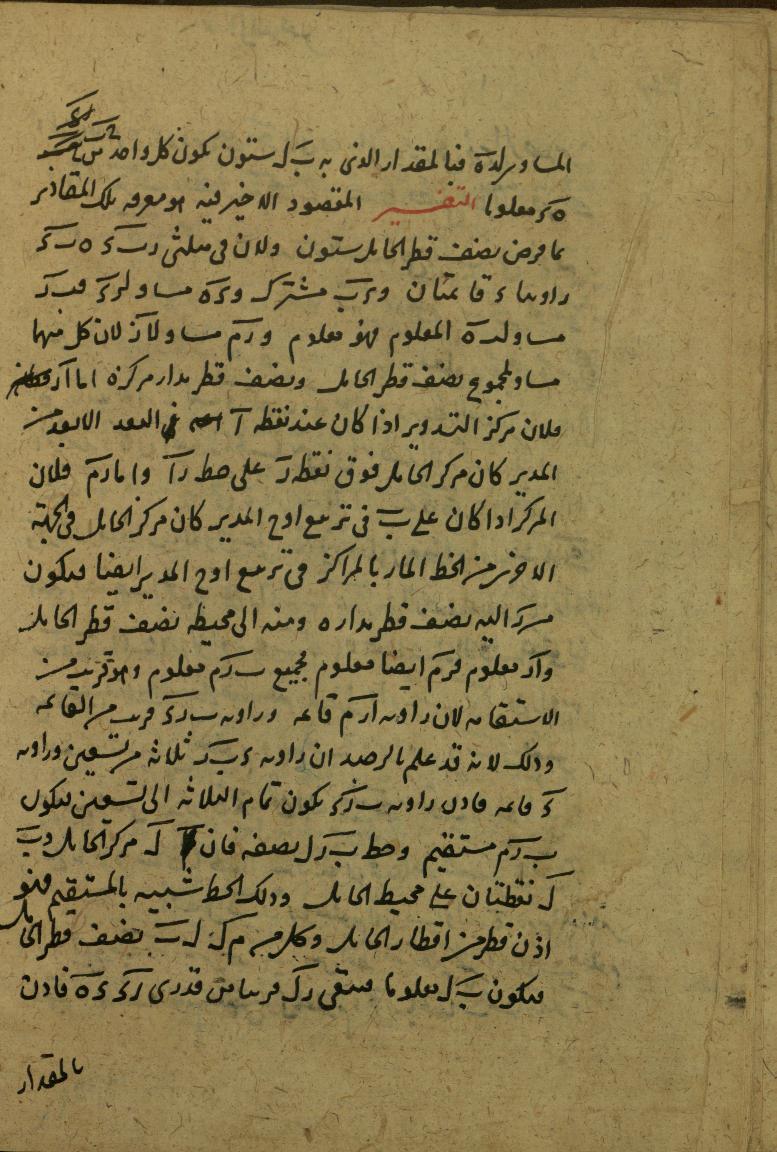 المساو لدة فبالمقدار الذى به بَ لَ ستون يكون كل واحد من
ة ر معلوما التفسير المقصود الاخير فيه هو معرفه تلك المقادير
بما فرض نصف قطر الحامل ستون ولان فى مثلثى
راويتا ء قائمتان و ء ب مشترك و ء ة مساو
مساو لدة المعلوم فهو معلوم و رم مساو لاَز لان كل منهما
مساو لمجموع نصف قطر الحامل ونصف قطر مدار مركزه اما اَز
فلان مركز التدوير اذا كان عند نقطه آ البعد الابعد من
المدير كان مركز الحامل فوق نقطه رَ على خط رآ واما رم فلان
المركز اذا كان على بَ فى تربيع اوج المدير كان مركز الحامل فى الجهة
الاخرى من الخط المار بالمراكز فى تربيع اوج المدير ايضا فيكون
من رَ اليه نصف قطر مداره ومنه الى محيطه نصف قطر الحامل
و آر معلوم فرم ايضا معلوم فجميع ب رم معلوم وهو قريب من
الاستقامه لان زاويه ا ر م قائمه وزاويه ب ر ء قريب من القائمه
وذلك لانه قد علم بالرصد ان زاويه ء ب ر ثلاثه من تسعين وزاويه
ء قائمه فاذن زاويه ب ر ء يكون تمام الثلاثه الى تسعين فيكون
ب ر م مستقيم وخط ب ر ل نصفه فان لَ مركز الحامل و بَ
نقطتان على محيط الحامل وذلك الخط شبيه بالمستقيم فهو
اذن قطر من اقطار الحامل وكل من م لَ لَ بَ نصف قطر الحامل
فيكون بَ لَ معلوما فيبقى رل من قدرى فاذن
بالمقدار